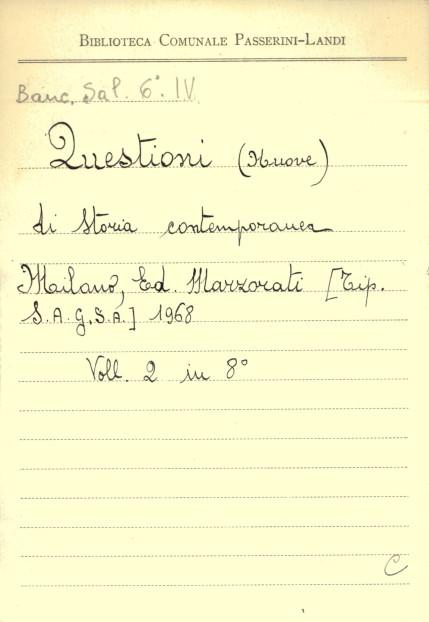 BIBLIOTECA COMUNALE PASSERINI-LANDI
Banc. Sal. 6°. IV
Questioni (Nuove)
di Storia contemporanea
Milano, Ed. Marzorati [Tip.
S.A.G.S.A.] 1968
Voll. 2 in 8°
C